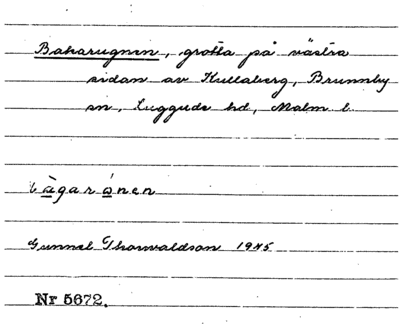 Bakarugnen, grotta på västra
sidan av Kullaberg, Brunnby
sn, Luggude hd, Malm l.
Gunnel Thorwaldson 1945
Nr 5672.